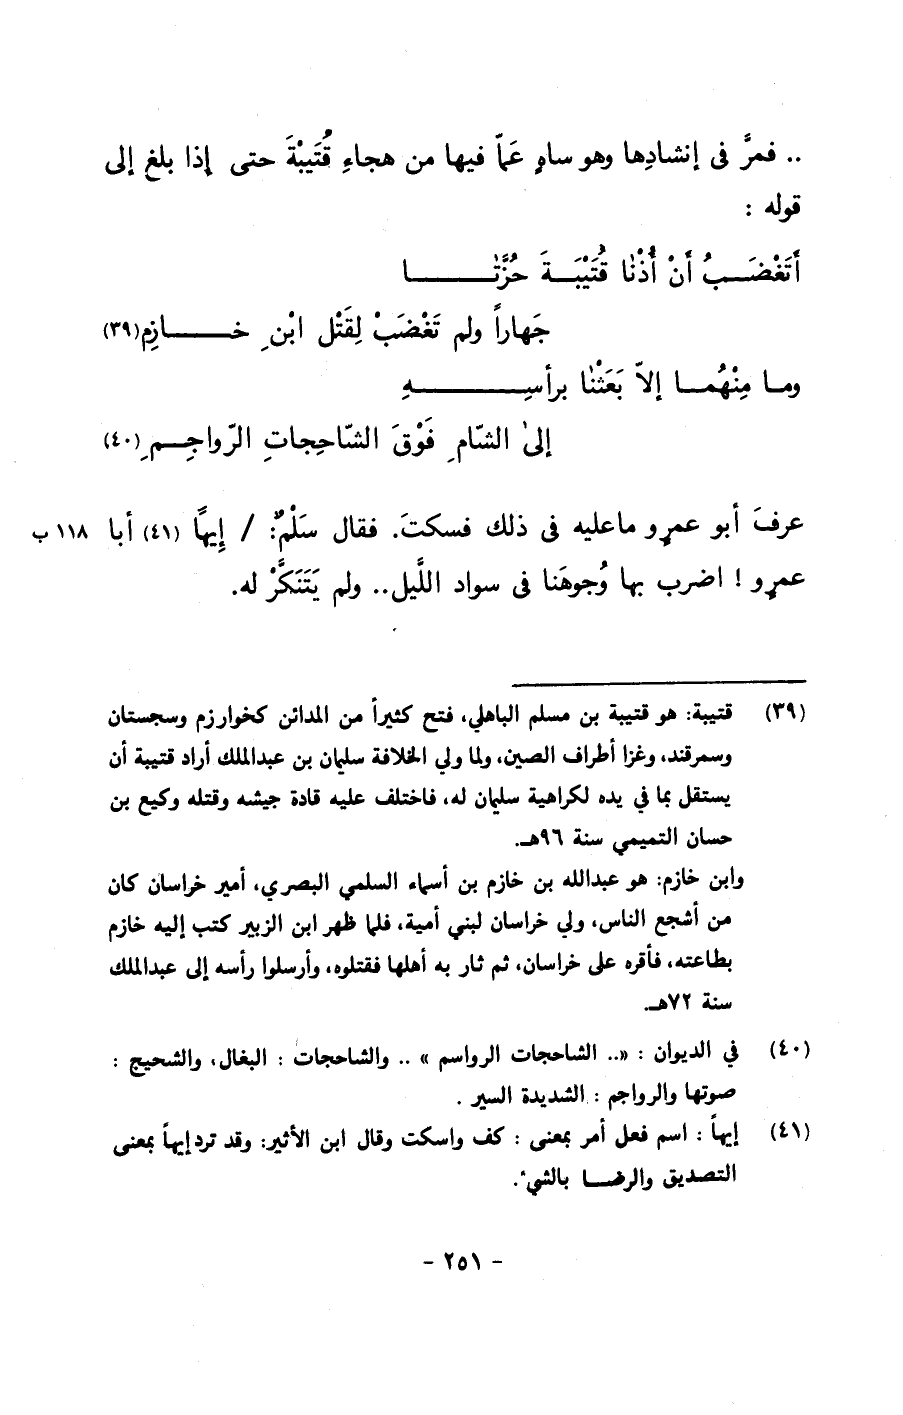 .. فمرَّ فى إنشادِها وهو ساهٍ عَمّا فيها من هجاءِ قُتَيبْةَ حتى إذا بلغ إلى
قوله :
أَتَغْضَبُ أَنْ أُذْنٰا قُتَيْبَةَ حُزَّتٰا
جَهاراً ولم تَغْضَبْ لِقَتْل ابْنِ خازِمِ(٣٩)
وما مِنْهُما إلاّ بَعَثْنٰا برأسِهِ
إلىٰ الشّامِ فَوْقَ الشّاحِجاتِ الرّواجِمِ(٤٠)
عرفَ أبو عمرٍو ماعليه فى ذلك فسكتَ. فقال سَلْمٌ: / إِيهًا (٤١) أبا ١١٨ ب
عمرٍو ! اضرب بها وُجوهَنا فى سواد اللَّيل.. ولم يَتَنَكَّرْ له.
(٣٩) قتيبة: هو قتيبة بن مسلم الباهلي، فتح كثيراً من المدائن كخوارزم وسجستان
وسمرقند، وغزا أطراف الصين، ولما ولي الخلافة سليمان بن عبدالملك أراد قتيبة أن
يستقل بما في يده لكراهية سليمان له، فاختلف عليه قادة جيشه وقتله وكيع بن
حسان التميمي سنة ٩٦هـ.
وابن خازم: هو عبدالله بن خازم بن أسماء السلمي البصري، أمير خراسان كان
من أشجع الناس، ولي خراسان لبني أمية، فلما ظهر ابن الزبير كتب إليه خازم
بطاعته، فأقره على خراسان، ثم ثار به أهلها فقتلوه، وأرسلوا رأسه إلى عبدالملك
سنة ٧٢هـ.
(٤٠) في الديوان : «.. الشاحجات الرواسم » .. والشاحجات : البغال، والشحيج :
صوتها والرواجم : الشديدة السير .
(٤١) إيهاً : اسم فعل أمر بمعنى : كف واسكت وقال ابن الأثير: وقد ترد إيهاً بمعنى
التصديق والرضا بالشيء.
- ٢٥١ -